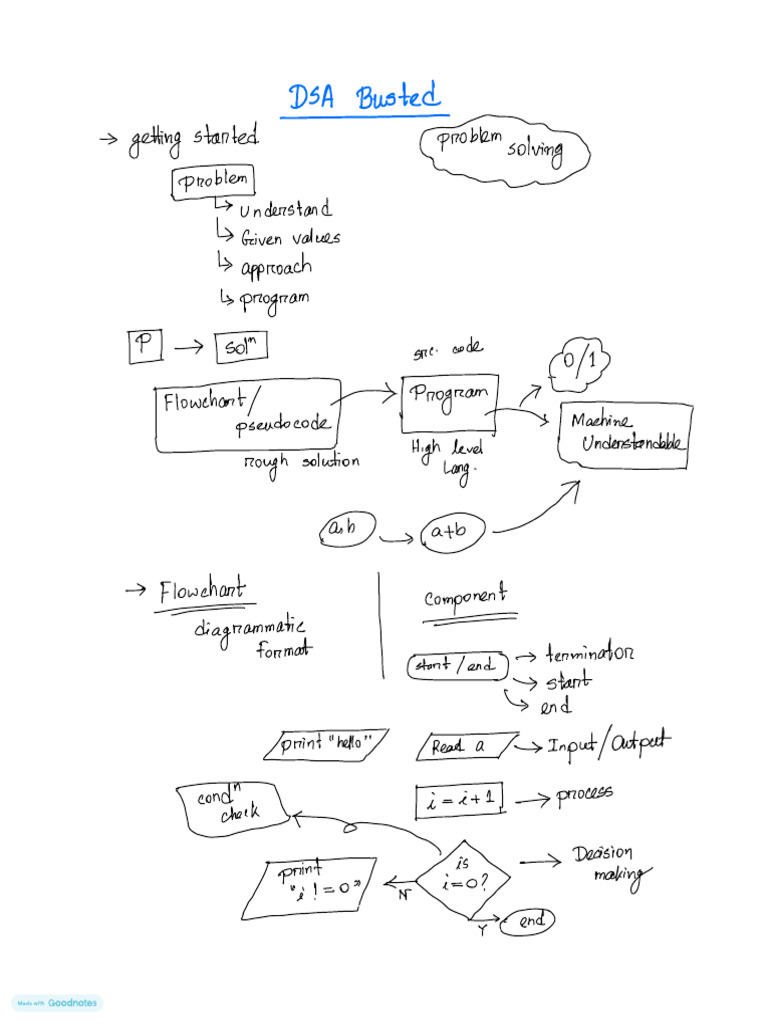 DSA Busted
→ getting started
problem
solving
problem
↳ understand
↳ Given values
↳ approach
↳ program
P → solⁿ
src. code
0/1
Flowchart/
pseudocode
Program
Machine
Understandable
rough solution
High level
Lang.
a,b → a+b
→ Flowchart
diagrammatic
format
Component
start/end → terminator
→ start
→ end
print "hello"
Read a → Input/Output
condⁿ
check
i = i+1 → process
is
i=0?
→ Decision
making
print
"i != 0"
N
Y
end
Made with Goodnotes